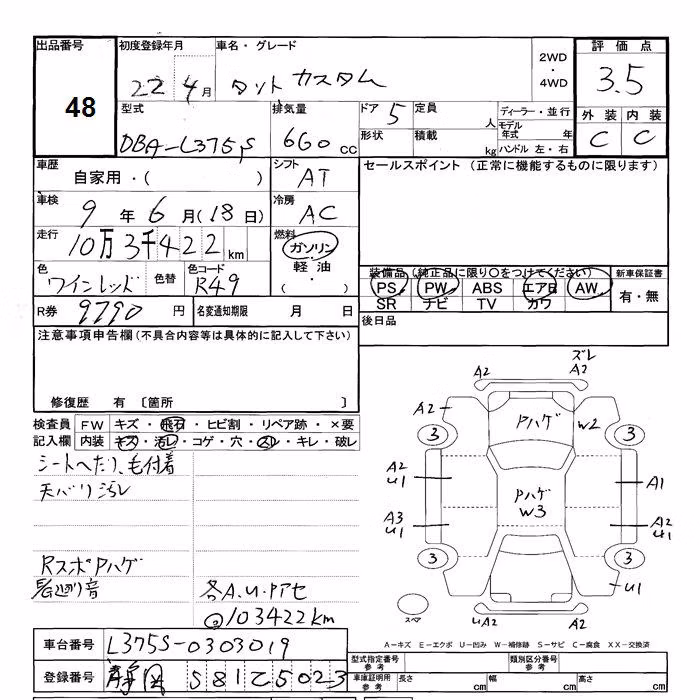 出品番号 初度登録年月 車名・グレード 評価点
48
22 4月 タント カスタム 2WD・4WD 3.5
型式 排気量 ドア 5 定員 人 ディーラー・並行 外装 内装
DBA-L375S 660cc 形状 積載 kg モデル年式 年 ハンドル 左・右 C C
車歴 シフト セールスポイント (正常に機能するものに限ります)
自家用・( ) AT
車検 冷房
9年6月(18日) AC
走行 燃料
10万3千422km ガソリン・軽油・( )
色 色替 色コード 装備品(純正品に限り○をつけてください) 新車保証書
ワインレッド R49 PS PW ABS エアB AW 有・無
SR ナビ TV カワ
R券 9790円 名変通知期限 月 日 後日品
注意事項申告欄(不具合内容等は具体的に記入して下さい)
修復歴 有 〔箇所 〕
検査員 FW キズ・飛石・ヒビ割・リペア跡・×要
記入欄 内装 キズ・汚レ・コゲ・穴・スレ・キレ・破レ
シートへたり、毛付着
天バリ汚レ
RスポPハゲ
各A.U.Pアセ
@103422km
ズレ
A2 A2
A2 Pハゲ W2
3 3
A2 U1 A1
Pハゲ W3
A3 U1 A2 U1
3 3
U1
スペア UA2 A2
A-キズ E-エクボ U-凹み W-補修跡 S-サビ C-腐食 XX-交換済
車台番号 L375S-0303019
型式指定番号 参考 類別区分番号 参考
登録番号 静岡 581 25023
車庫証明用 参考 長さ cm 幅 cm 高さ cm